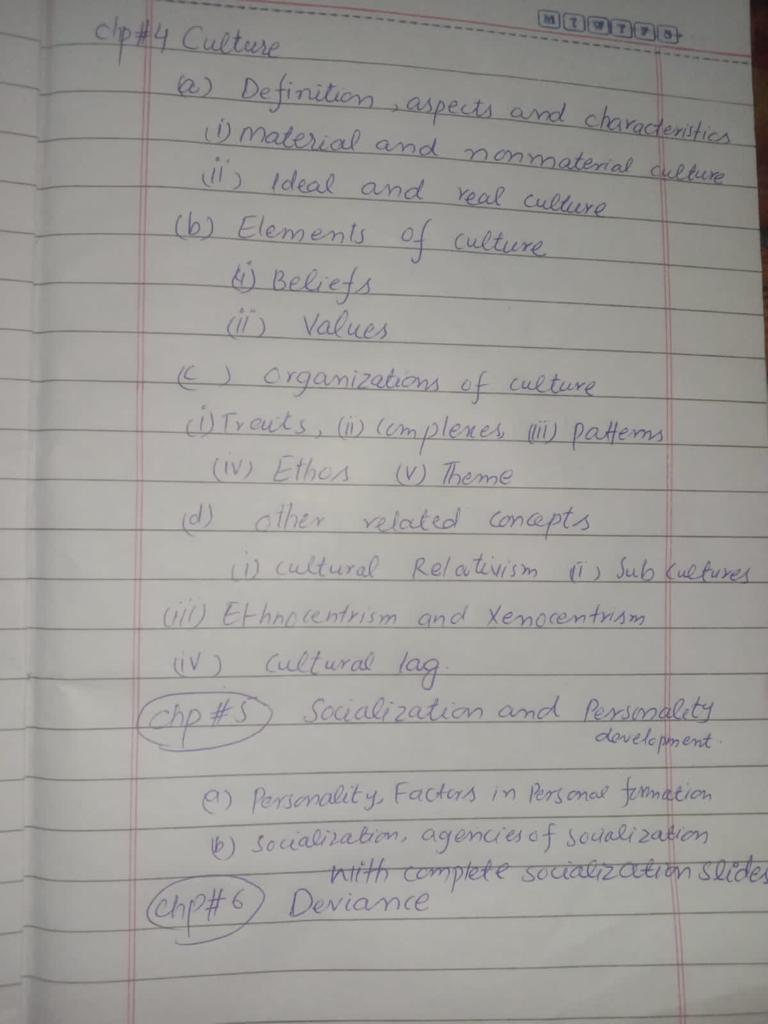 M T W T F S
chp#4 Culture
(a) Definition, aspects and characteristics
(i) material and nonmaterial culture
(ii) Ideal and real culture
(b) Elements of culture
(i) Beliefs
(ii) Values
(c) Organizations of culture
(i) Traits, (ii) Complexes, (iii) patterns
(iv) Ethos (v) Theme
(d) other related concepts
(i) cultural Relativism (ii) Sub Cultures
(iii) Ethnocentrism and Xenocentrism
(iv) cultural lag.
chp #5 Socialization and Personality
development.
(a) Personality, Factors in Personal formation
(b) Socialization, agencies of socialization
with complete socialization slides
chp#6 Deviance